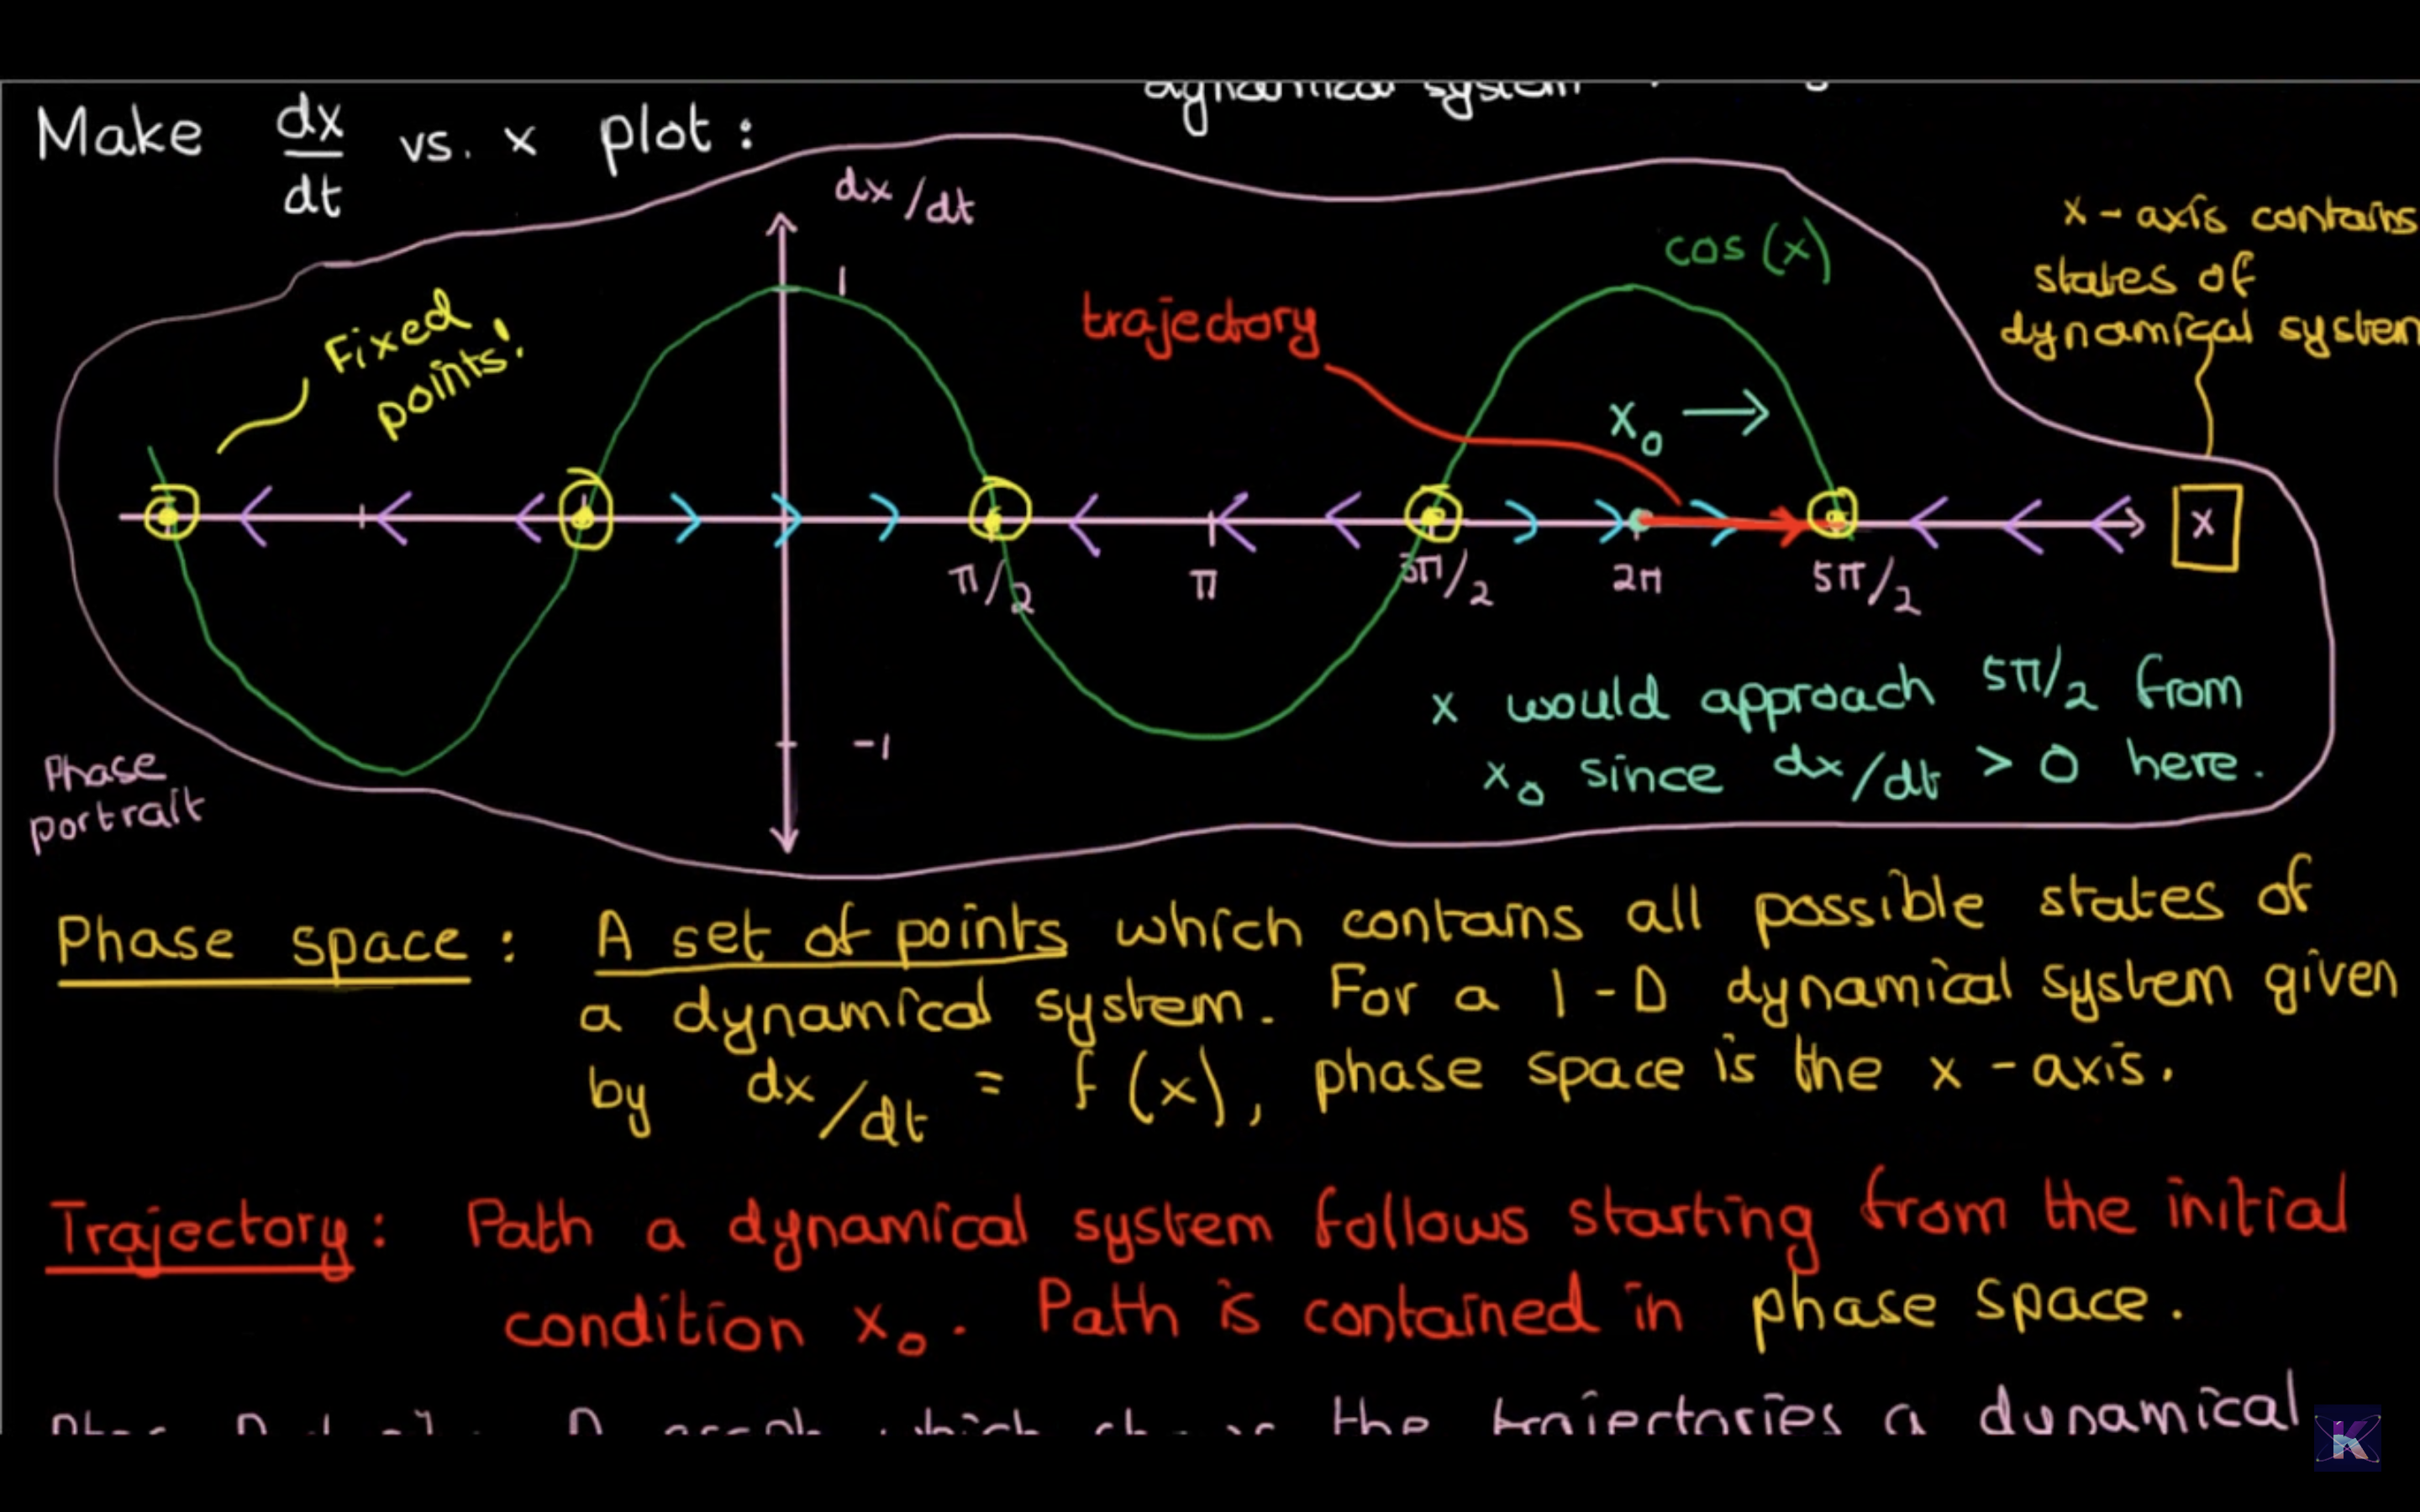 dynamical system
Make dx/dt vs. x plot :
dx/dt
1
cos (x)
x - axis contains
states of
dynamical system
Fixed
points!
trajectory
x₀ →
x
π/2
π
3π/2
2π
5π/2
-1
x would approach 5π/2 from
x₀ since dx/dt > 0 here.
Phase
portrait
Phase space : A set of points which contains all possible states of
a dynamical system. For a 1-D dynamical system given
by dx/dt = f(x), phase space is the x-axis.
Trajectory : Path a dynamical system follows starting from the initial
condition x₀. Path is contained in phase space.
the trajectories a dynamical
K